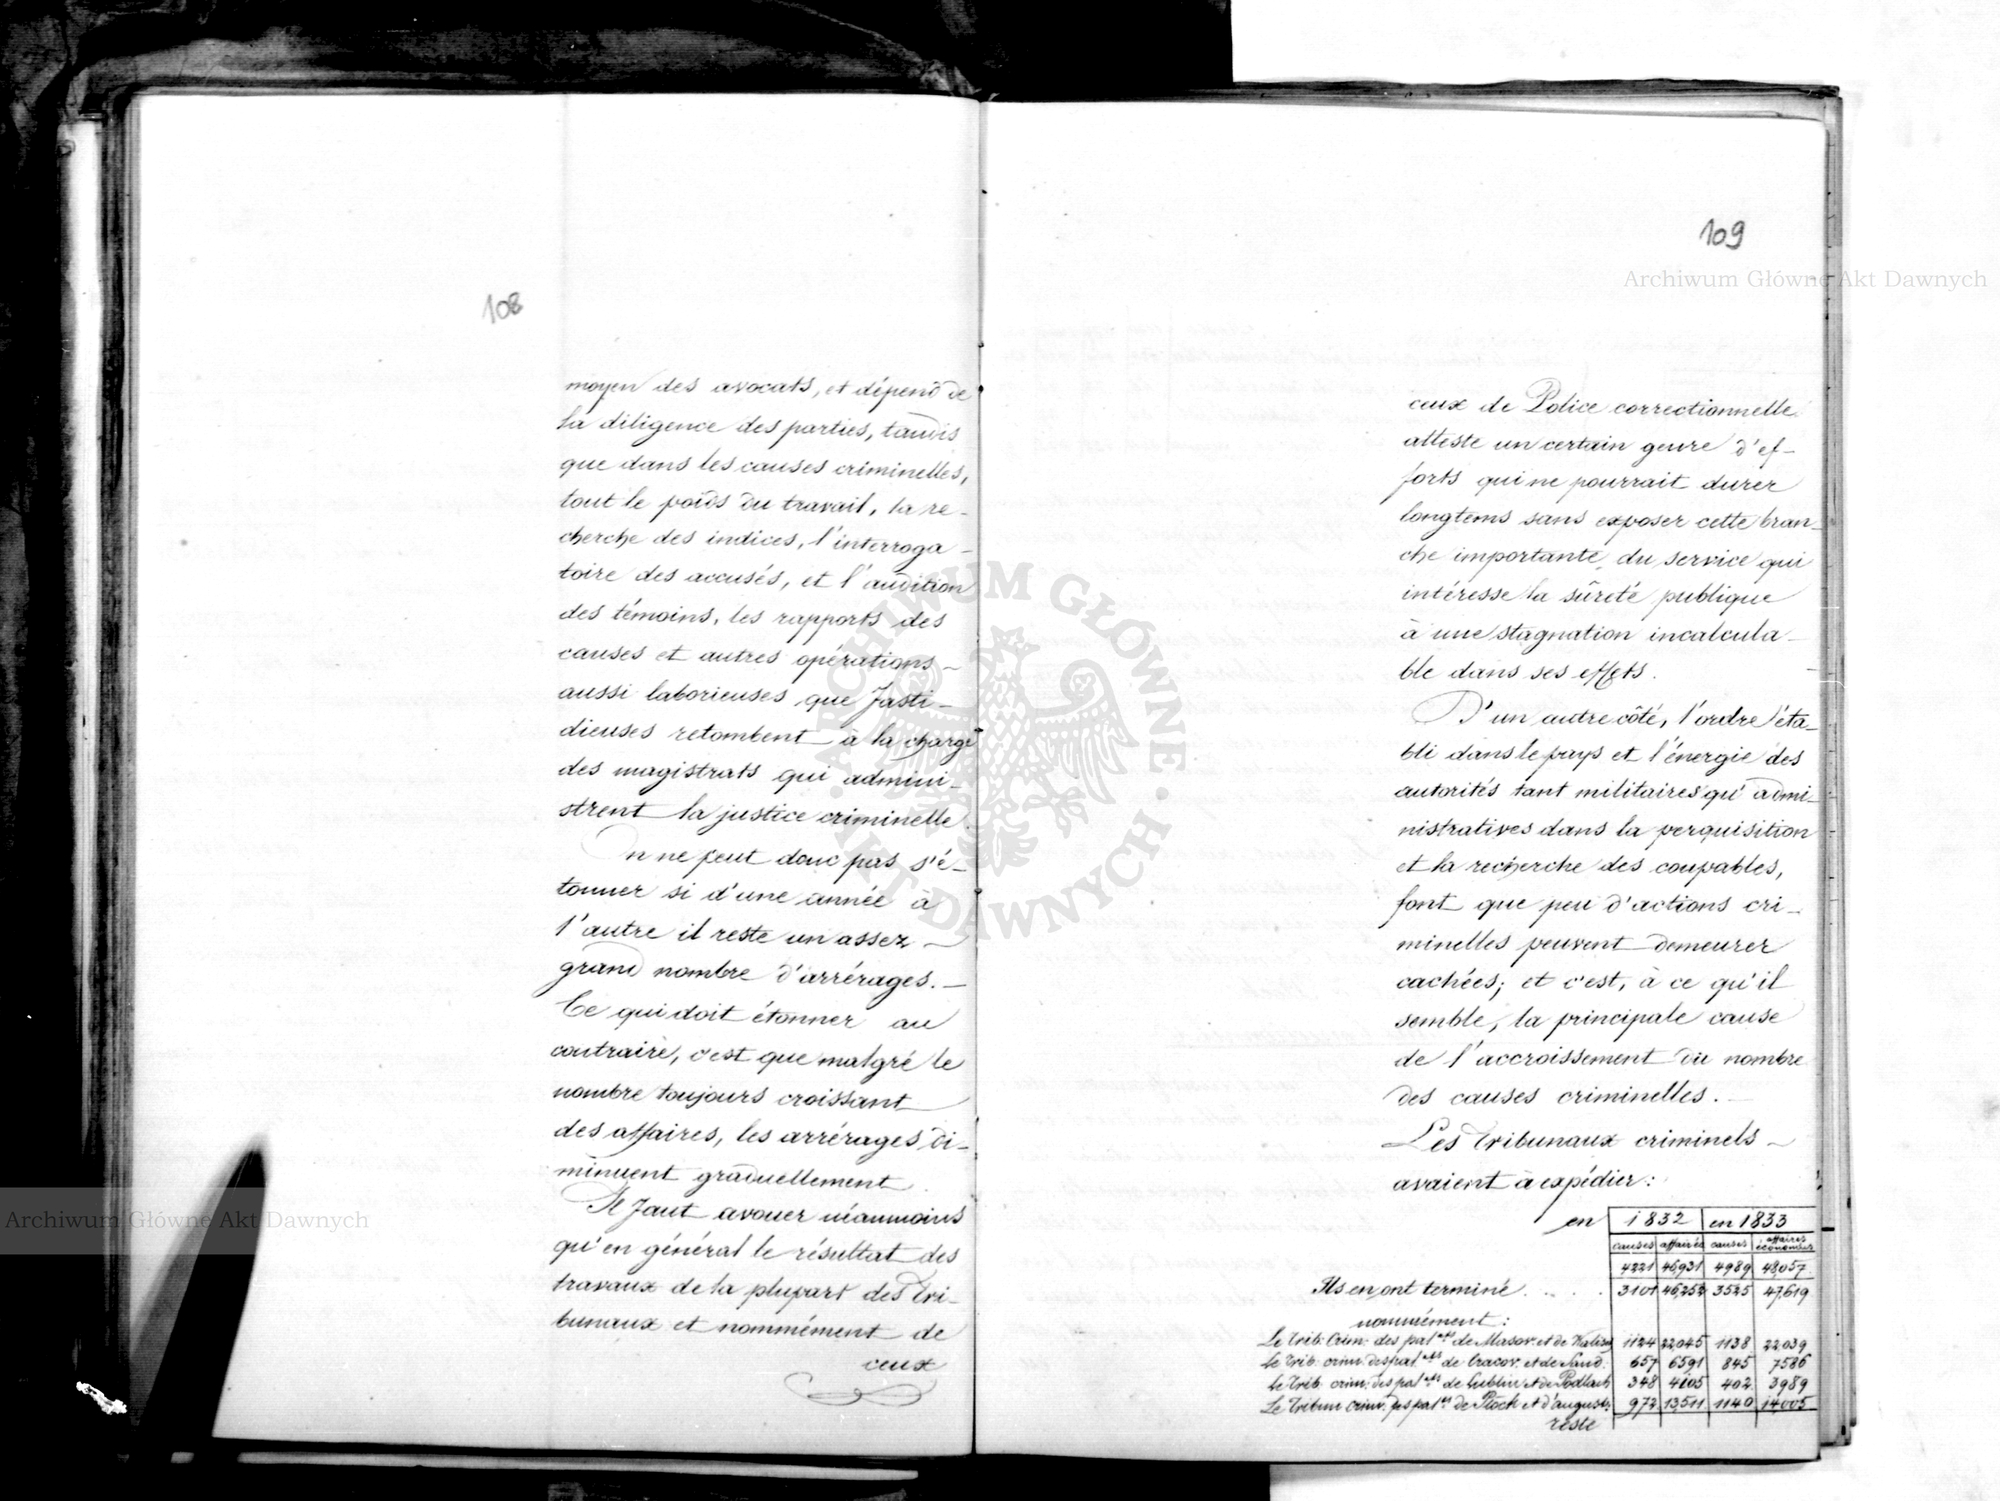 108
moyen des avocats, et dépend de
la diligence des parties, tandis
que dans les causes criminelles,
tout le poids du travail, la re-
cherche des indices, l'interroga-
toire des accusés, et l'audition
des témoins, les rapports des
causes et autres opérations
aussi laborieuses que fasti-
dieuses retombent à la charge
des magistrats qui admini-
strent la justice criminelle.
On ne peut donc pas s'é-
tonner si d'une année à
l'autre il reste un assez
grand nombre d'arrérages.
Ce qui doit étonner au
contraire, c'est que malgré le
nombre toujours croissant
des affaires, les arrérages di-
minuent graduellement.
Il faut avouer néanmoins
qu'en général le résultat des
travaux de la plupart des Tri-
bunaux et nommément de
ceux
109
ceux de Police correctionnelle
atteste un certain genre d'ef-
forts qui ne pourrait durer
longtems sans exposer cette bran-
che importante du service qui
intéresse la sûreté publique
à une stagnation incalcula-
ble dans ses effets.
D'un autre côté, l'ordre éta-
bli dans le pays et l'énergie des
autorités tant militaires qu'admi-
nistratives dans la perquisition
et la recherche des coupables,
font que peu d'actions cri-
minelles peuvent demeurer
cachées; et c'est, à ce qu'il
semble, la principale cause
de l'accroissement du nombre
des causes criminelles.
Les Tribunaux criminels
avaient à expédier:
en 1832 en 1833
causes affaires causes affaires économiques
4221 46,931 4989 48,057
Ils en ont terminé . . . . 3101 46,252 3525 47,619
nommément:
Le Trib: Crim: des pal.ats de Masov: et de Kalisz 1124 22,045 1138 22,039
le Trib: crim: des pal.ats de Cracov: et de Sand: 657 6591 845 7586
le Trib: crim: des pal.ats de Lublin et de Podlach 348 4105 402 3989
Le Tribun crim: des pal.ats de Plock et d'august: 972 13,511 1140 14,005
reste
Archiwum Główne Akt Dawnych
Archiwum Główne Akt Dawnych
ARCHIWUM GŁÓWNE AKT DAWNYCH